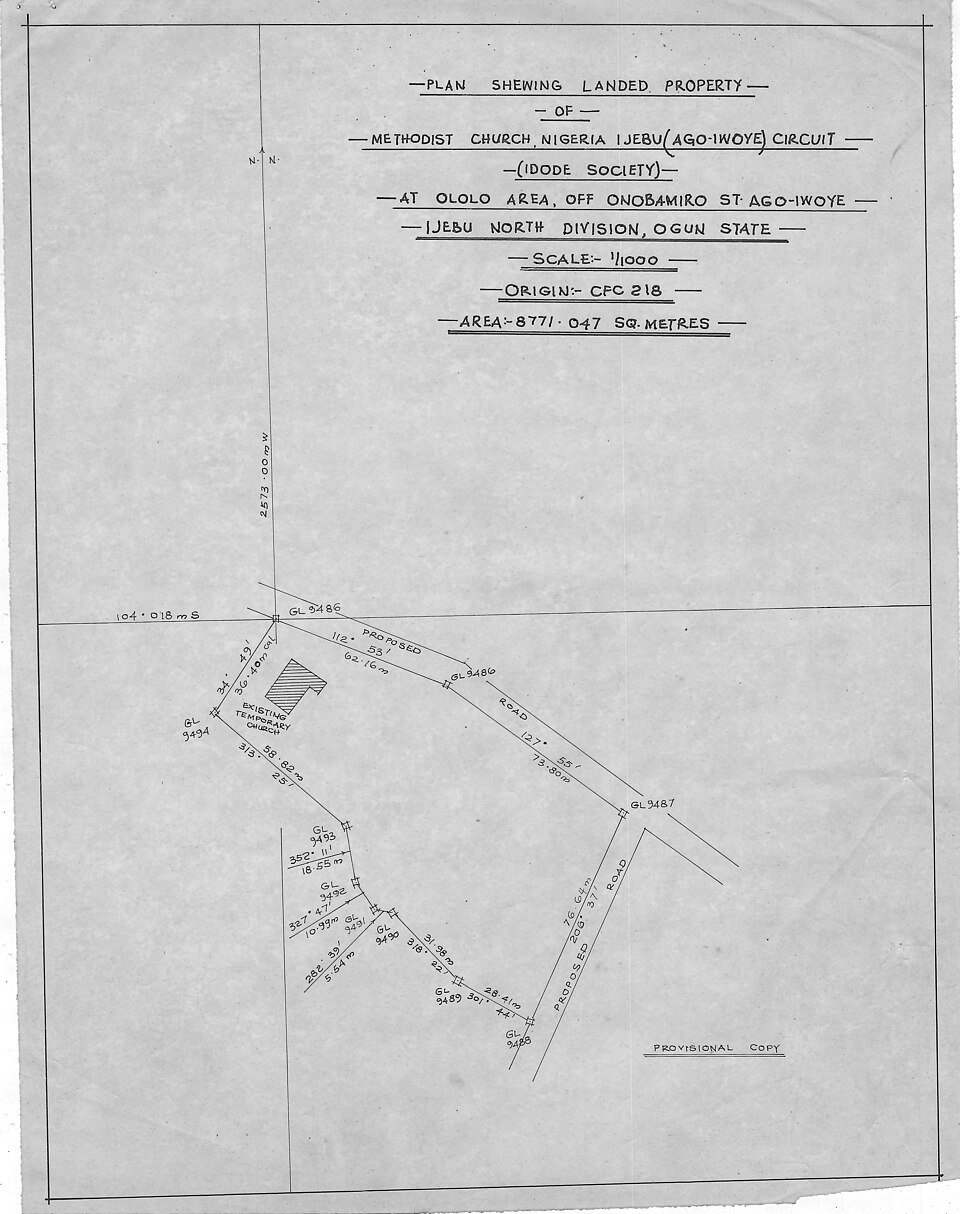 —PLAN SHEWING LANDED PROPERTY—
— OF —
—METHODIST CHURCH, NIGERIA IJEBU (AGO-IWOYE) CIRCUIT —
—(IDODE SOCIETY)—
—AT OLOLO AREA, OFF ONOBAMIRO ST. AGO-IWOYE —
—IJEBU NORTH DIVISION, OGUN STATE —
—SCALE:- 1/1000 —
—ORIGIN:- CFC 218 —
—AREA:- 8771·047 SQ. METRES —
N· N·
2573·00mW
104·018m S
GL 9486
PROPOSED
112° 53'
62·16m
GL 9486
ROAD
34° 49'
36·40m cal
EXISTING
TEMPORARY
CHURCH
GL
9494
58·82m
313° 25'
127° 55'
73·80m
GL 9487
GL
9493
352° 11'
18·55m
GL
9492
327° 47'
10·99m
GL
9491
GL
9490
282° 39'
5·54m
31·98m
318° 22'
GL
9489
28·41m
301° 44'
GL
9488
76·64m
206° 37'
PROPOSED ROAD
PROVISIONAL COPY